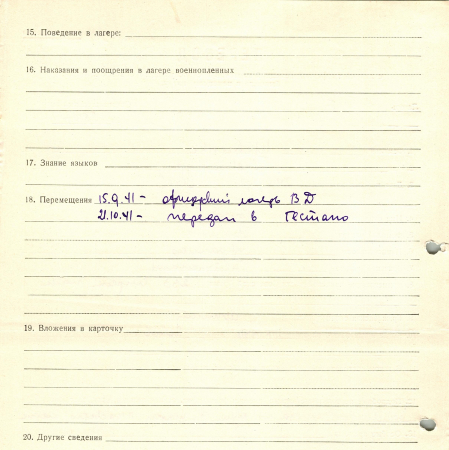 15. Поведение в лагере:
16. Наказания и поощрения в лагере военнопленных
17. Знание языков
18. Перемещения 15.9.41 - офицерский лагерь ВД
21.10.41 - передан в Гестапо
19. Вложения в карточку
20. Другие сведения